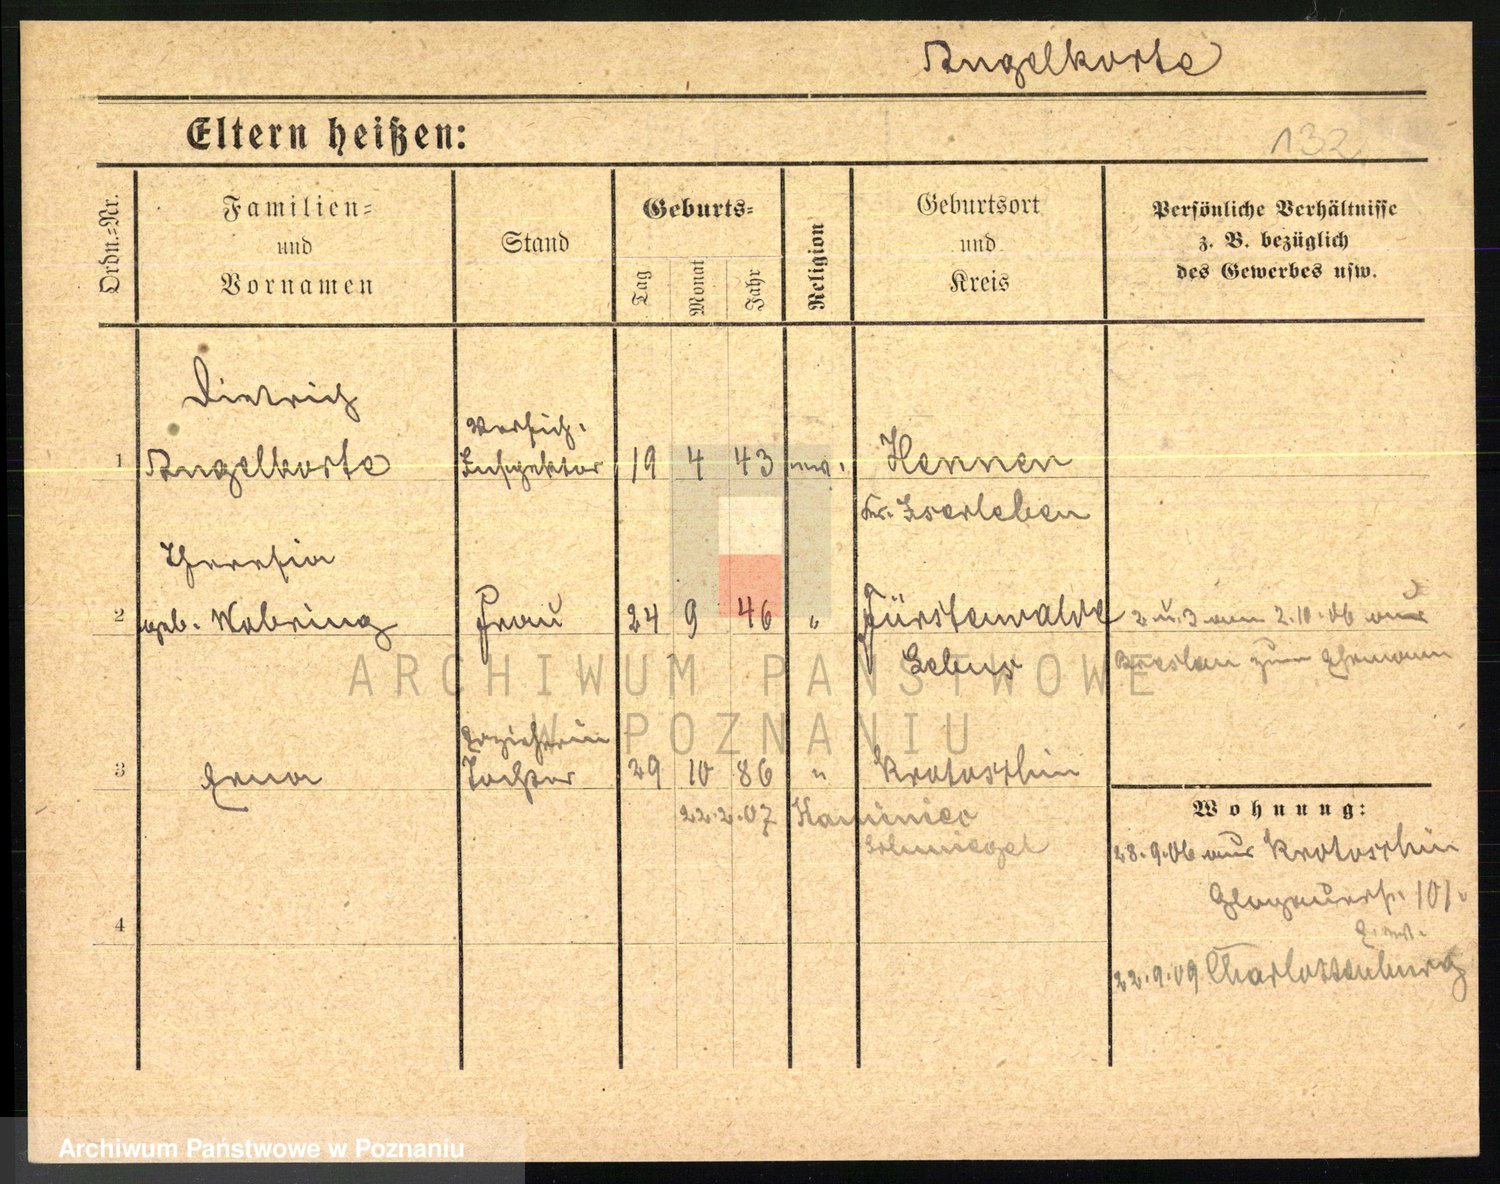 Angelkorte
Eltern heißen:
132.
Ordn.=Nr.
Familien=
und
Vornamen
Stand
Geburts=
Tag
Monat
Jahr
Religion
Geburtsort
und
Kreis
Persönliche Verhältnisse
z. B. bezüglich
des Gewerbes usw.
Dietrich
Versich.
1 Angelkorte Inspektor 19 4 43 Hennen
Kr. Iserlohen
Theresia
2 geb. Frau 24 9 46 " Fürstenwalde 2 u. 3 am 2.10.06 aus
Lebus Breslau zum Ehemann
ARCHIWUM PAŃSTWOWE
W POZNANIU
Erzieherin
3 Erna Tochter 29 10 86 " Krotoschin
Wohnung:
22.2.07 Kaminiec
Schmiegel
28.9.06 aus Krotoschin
Glogauerstr. 101.
4
22.9.09 Charlottenburg
Archiwum Państwowe w Poznaniu